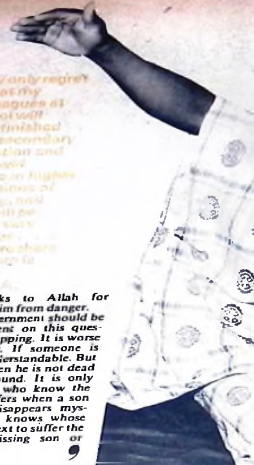 only regret
at my
agues at
ol will
finished
secondary
tion and
in higher
ks to Allah for
im from danger.
ernment should be
ent on this ques-
pping. It is worse
. If someone is
derstandable. But
en he is not dead
und. It is only
who know the
fers when a son
isappears mys-
knows whose
ext to suffer the
issing son or